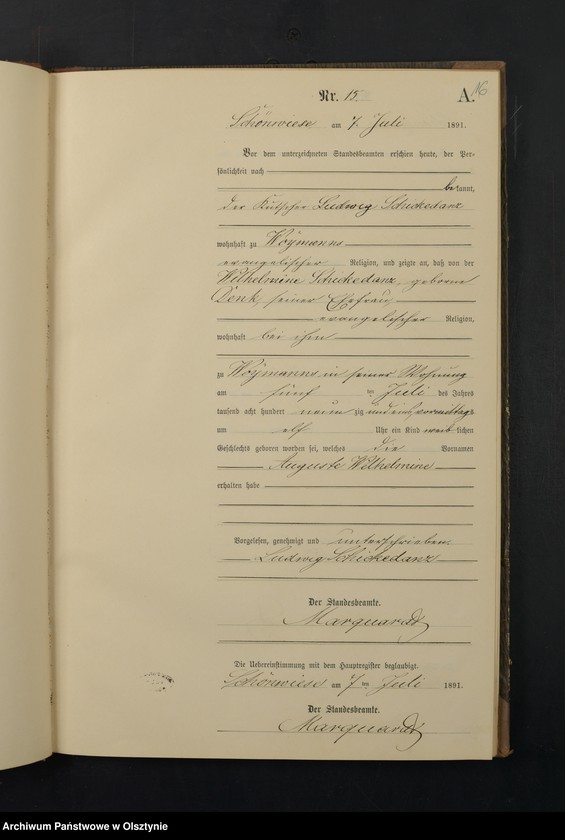 Nr. 15.
A. 16
Schönwiese am 7. Juli 1891.
Vor dem unterzeichneten Standesbeamten erschien heute, der Per-
sönlichkeit nach
bekannt,
der Kutscher Ludwig Schickedanz
wohnhaft zu Woymanns
evangelischer Religion, und zeigte an, daß von der
Wilhelmine Schickedanz, geborene
Denk, seiner Ehefrau,
evangelischer Religion,
wohnhaft bei ihm
zu Woymanns in seiner Wohnung
am fünf ten Juli des Jahres
tausend acht hundert neun zig und eins vormittags
um elf Uhr ein Kind weib lichen
Geschlechts geboren worden sei, welches die Vornamen
Auguste Wilhelmine
erhalten habe
Vorgelesen, genehmigt und unterschrieben.
Ludwig Schickedanz
Der Standesbeamte.
Marquardt
Die Uebereinstimmung mit dem Hauptregister beglaubigt.
Schönwiese am 7 ten Juli 1891.
Der Standesbeamte.
Marquardt
Archiwum Państwowe w Olsztynie